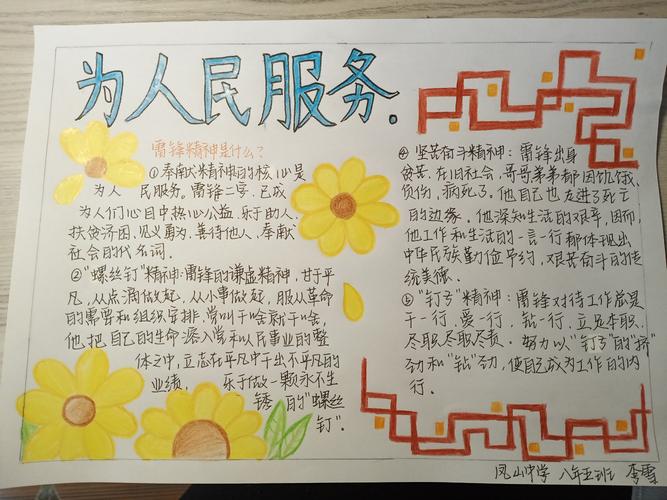 为人民服务.
雷锋精神是什么?
①奉献精神的核心是
为人民服务。雷锋二字,已成
为人们心目中热心公益、乐于助人、
扶贫济困、见义勇为、善待他人、奉献
社会的代名词.
②"螺丝钉"精神:雷锋的谦虚精神,甘于平
凡,从点滴做起,从小事做起,服从革命
的需要和组织安排,党叫干啥就干啥,
他把自己的生命融入党和人民事业的整
体之中,立志在平凡中干出不平凡的
业绩, 乐于做一颗永不生
锈的"螺丝
钉".
坚苦奋斗精神:雷锋出身
贫苦,在旧社会,哥哥弟弟都因饥饿、
负伤,病死了,他自己也走进了死亡
的边缘.他深知生活的艰辛,因而,
他工作和生活的一言一行都体现出
中华民族勤俭节约,艰苦奋斗的传
统美德.
"钉子"精神:雷锋对待工作总是
干一行,爱一行,钻一行,立足本职、
尽职尽职尽责.努力以"钉子"的"挤"
劲和"钻"劲,使自己成为工作的内
行.
凤山中学 八年五班 李雪